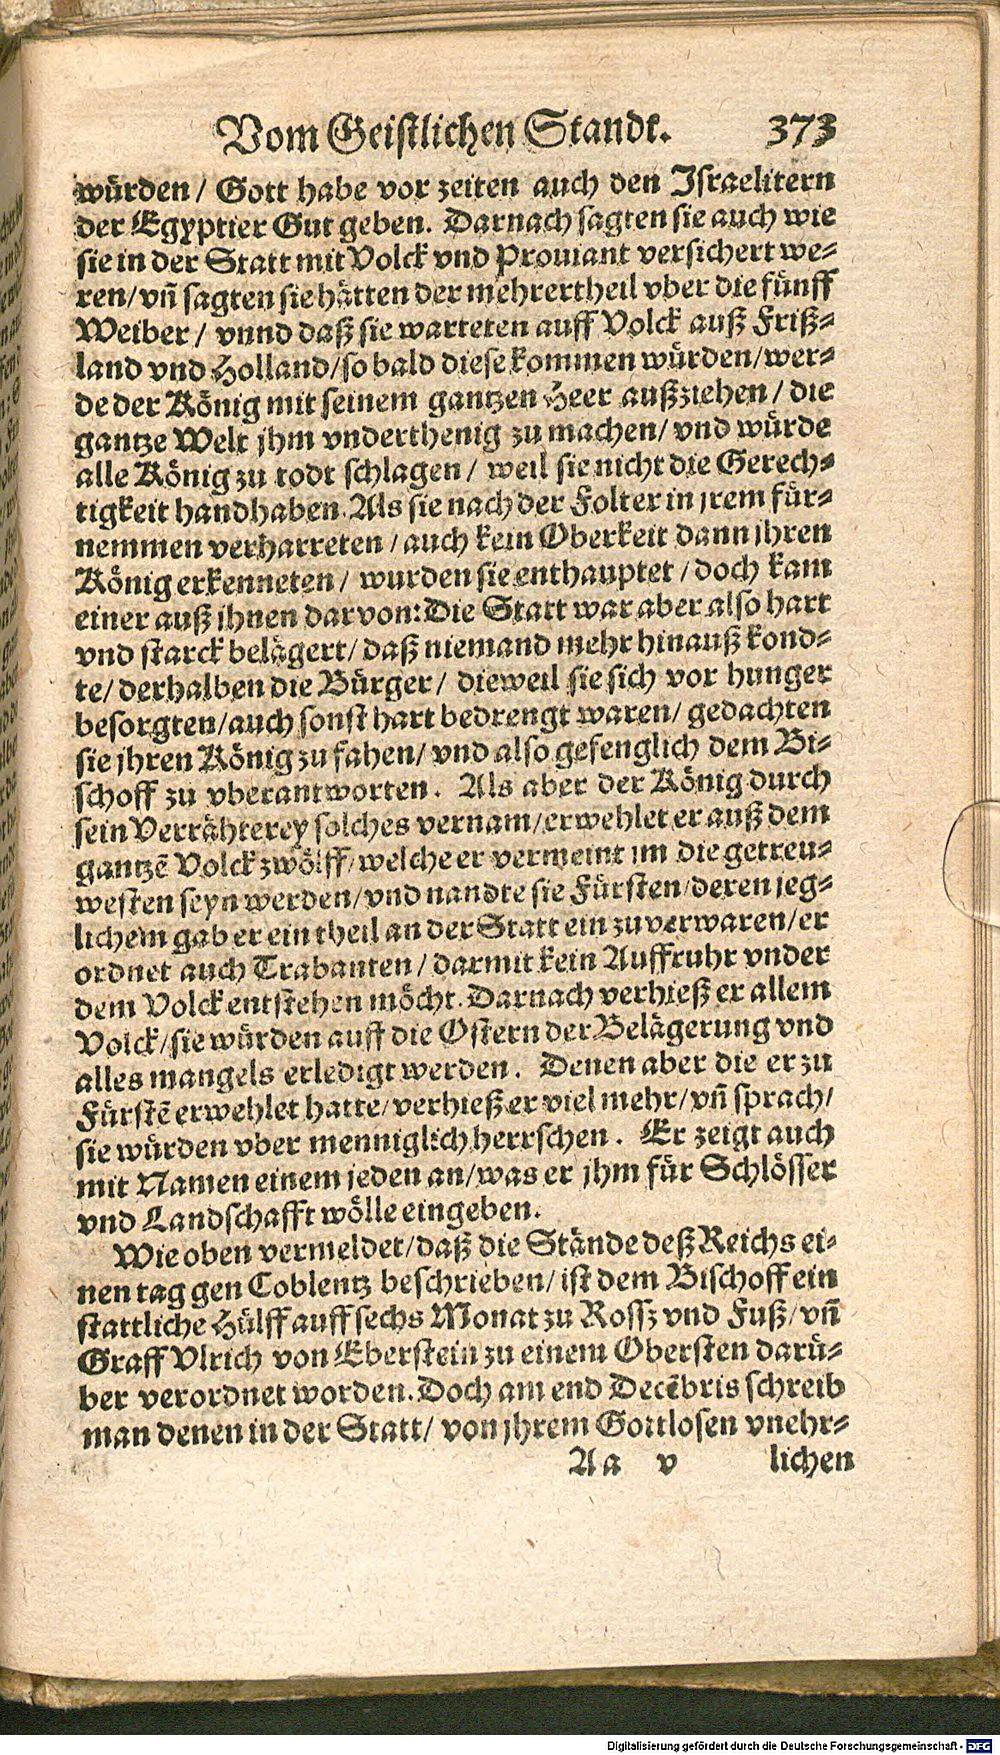 Vom Geistlichen Standt. 373
würden / Gott habe vor zeiten auch den Israelitern
der Egyptier Gut geben. Darnach sagten sie auch wie
sie in der Statt mit Volck vnd Prouiant versichert we-
ren/ vñ sagten sie hätten der mehrertheil vber die fünff
Weiber / vnnd daß sie warteten auff Volck auß Frieß-
land vnd Holland/ so bald diese kommen würden/ wer-
de der König mit seinem gantzen Heer außziehen / die
gantze Welt jhm vnderthenig zu machen/ vnd würde
alle König zu todt schlagen / weil sie nicht die Gerech-
tigkeit handhaben. Als sie nach der Folter in jrem für-
nemmen verharreten / auch kein Oberkeit dann jhren
König erkenneten / wurden sie enthauptet / doch kam
einer auß ihnen darvon: Die Statt war aber also hart
vnd starck belägert/ daß niemand mehr hinauß kond-
te/ derhalben die Bürger / dieweil sie sich vor hunger
besorgten/ auch sonst hart bedrengt waren/ gedachten
sie jhren König zu fahen/ vnd also gefenglich dem Bi-
schoff zu vberantworten. Als aber der König durch
sein Verrähterey solches vernam/ erwehlet er auß dem
gantzẽ Volck zwölff/ welche er vermeint im die getreu-
westen seyn werden/ vnd nandte sie Fürsten/ deren jeg-
lichem gab er ein theil an der Statt ein zuverwaren/ er
ordnet auch Trabanten / darmit kein Auffruhr vnder
dem Volck entstehen möcht. Darnach verhieß er allem
Volck/ sie würden auff die Ostern der Belägerung vnd
alles mangels erledigt werden. Denen aber die er zu
Fürstẽ erwehlet hatte/ verhieß er viel mehr/ vñ sprach/
sie würden vber menniglich herrschen. Er zeigt auch
mit Namen einem jeden an/ was er jhm für Schlösser
vnd Landschafft wölle eingeben.
Wie oben vermeldet/ daß die Stände deß Reichs ei-
nen tag gen Coblentz beschrieben/ ist dem Bischoff ein
stattliche Hülff auff sechs Monat zu Rossz vnd Fuß/ vñ
Graff Vlrich von Eberstein zu einem Obersten darü-
ber verordnet worden. Doch am end Decẽbris schreib
man denen in der Statt/ von jhrem Gottlosen vnehr-
Aa v lichen
Digitalisierung gefördert durch die Deutsche Forschungsgemeinschaft - DFG